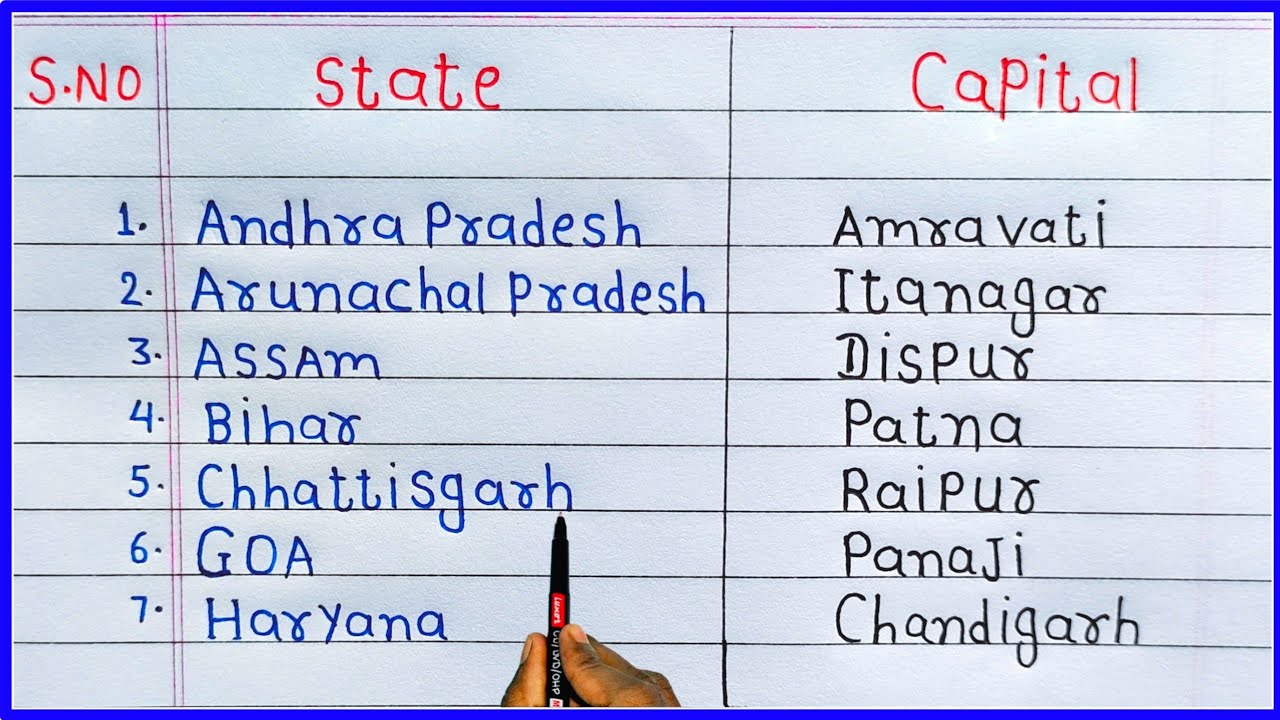 S.NO State Capital
1. Andhra Pradesh Amravati
2. Arunachal Pradesh Itanagar
3. ASSAm Dispur
4. Bihar Patna
5. Chhattisgarh Raipur
6. GOA PanaJi
7. Haryana Chandigarh
Luxor
CD/DVD/OHP